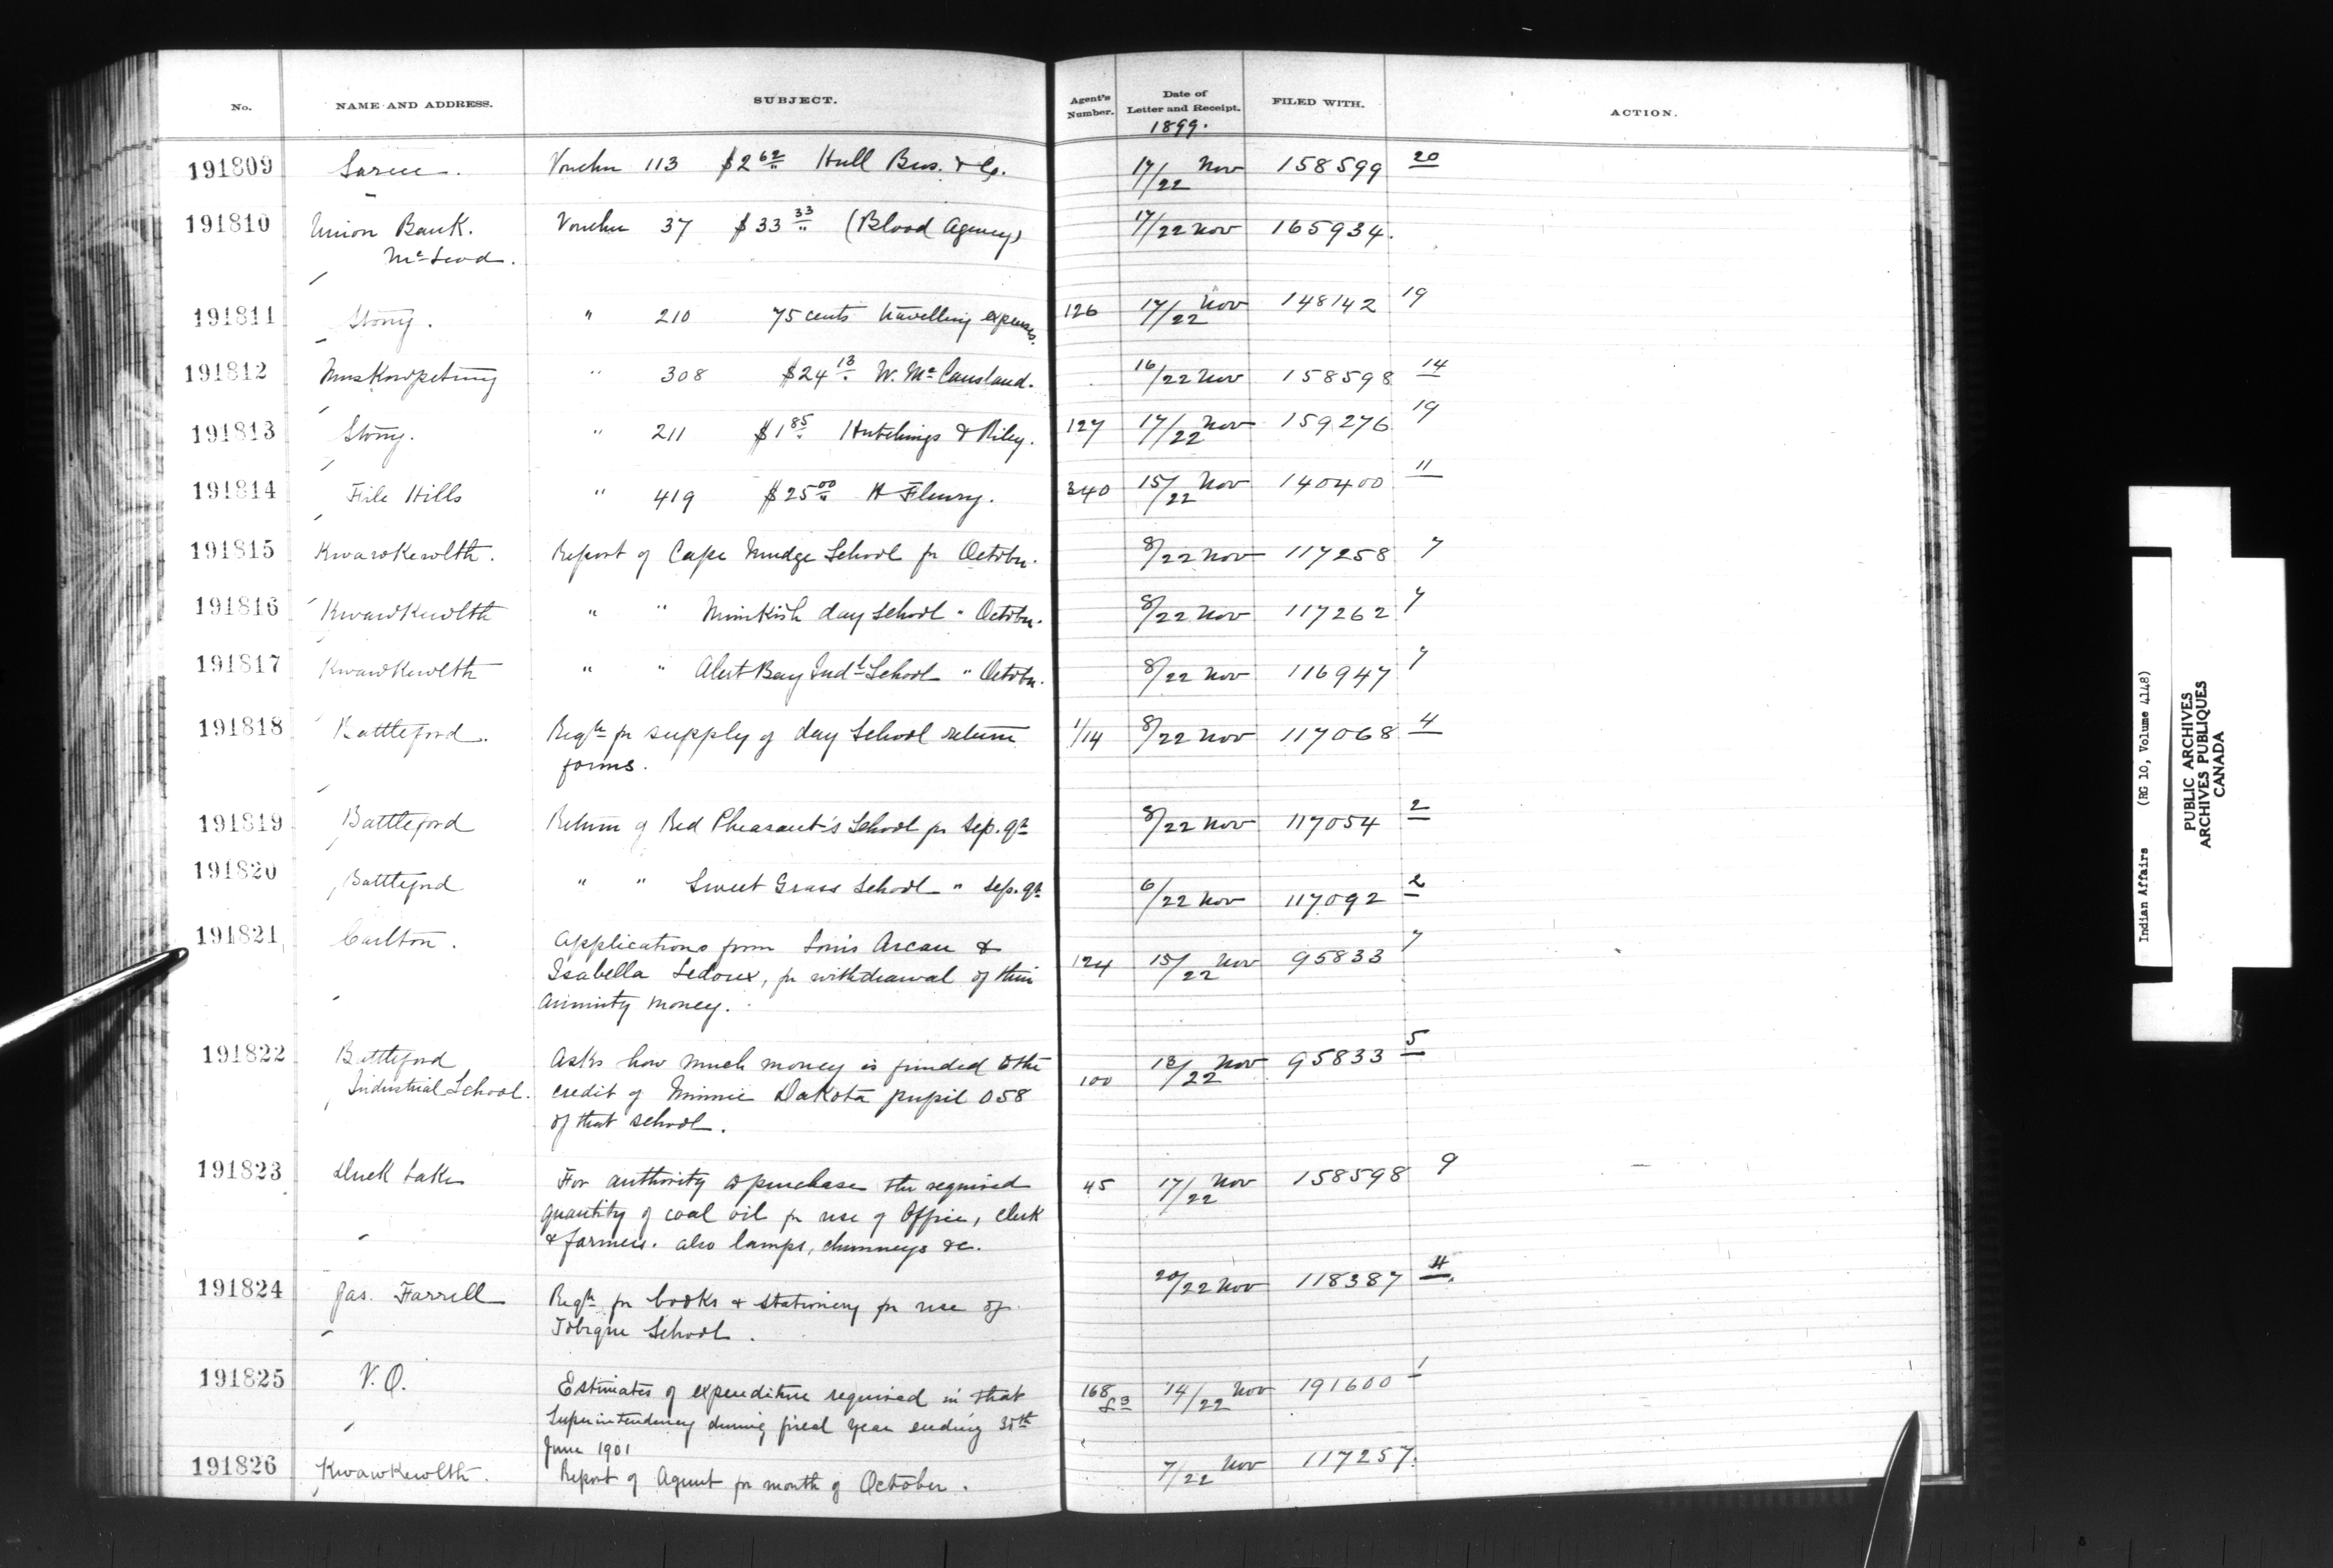 No. NAME AND ADDRESS. SUBJECT. Agent's Number. Date of Letter and Receipt. FILED WITH. ACTION.
1899.
191809 Sarcee. Voucher 113 $2 62 Hull Bros. & Co. 17/22 Nov 158599 20
191810 Union Bank. Voucher 37 $33 33 (Blood Agency) 17/22 Nov 165934.
McLeod.
191811 Stony. " 210 75 cents travelling expenses. 126 17/22 Nov 148142 19
191812 Muskowpetung " 308 $24 13 W. Mc Causland. 16/22 Nov 158598 14
191813 Stony. " 211 $1 85 Hutchings & Riley. 127 17/22 Nov 159276 19
191814 File Hills " 419 $25 00 H Fleury. 340 15/22 Nov 140400 11
191815 Kwawkewlth. Report of Cape Mudge School for October. 8/22 Nov 117258 7
191816 Kwawkewlth " " Nimkish day School " October. 8/22 Nov 117262 7
191817 Kwawkewlth " " Alert Bay Indl School " October. 8/22 Nov 116947 7
191818 Battleford. Reqn for supply of day School return 1/14 8/22 Nov 117068 4
forms.
191819 Battleford Return of Red Pheasant's School for Sep. qr 8/22 Nov 117054 2
191820 Battleford " " Sweet Grass School " Sep. qr 6/22 Nov 117092 2
191821 Carlton. Applications from Louis Arcan & 124 15/22 Nov 95833 7
Isabella Ledoux, for withdrawal of their
annuity money.
191822 Battleford Asks how much money is funded to the 100 18/22 Nov 95833 5
Industrial School. credit of Minnie Dakota pupil 058
of that school.
191823 Duck Lake For authority to purchase the required 45 17/22 Nov 158598 9
quantity of coal oil for use of Office, Clerk
& farmers. also lamps, chimneys &c.
191824 Jas. Farrell Reqn for books & stationery for use of 20/22 Nov 118387 4.
Tobique School.
191825 V.O. Estimates of expenditure required in that 168 14/22 Nov 191600 1
Superintendency during fiscal year ending 30th
June 1901
191826 Kwawkewlth. Report of Agent for month of October. 7/22 Nov 117257.
Indian Affairs (RG 10, Volume 4148)
PUBLIC ARCHIVES
ARCHIVES PUBLIQUES
CANADA